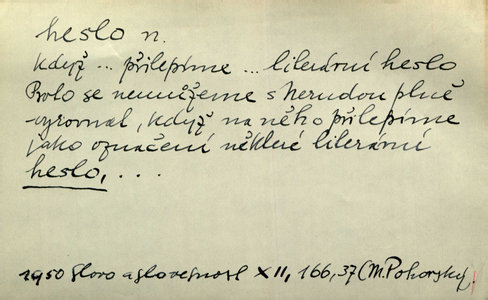 heslo n.
když ... přilepíme ... literární heslo
Proto se nemůžeme s Nerudou plně
vyrovnat, když na něho přilepíme
jako označení některé literární
heslo, . . .
1950 Slovo a slovesnost XII, 166, 37 (M. Pohorský)